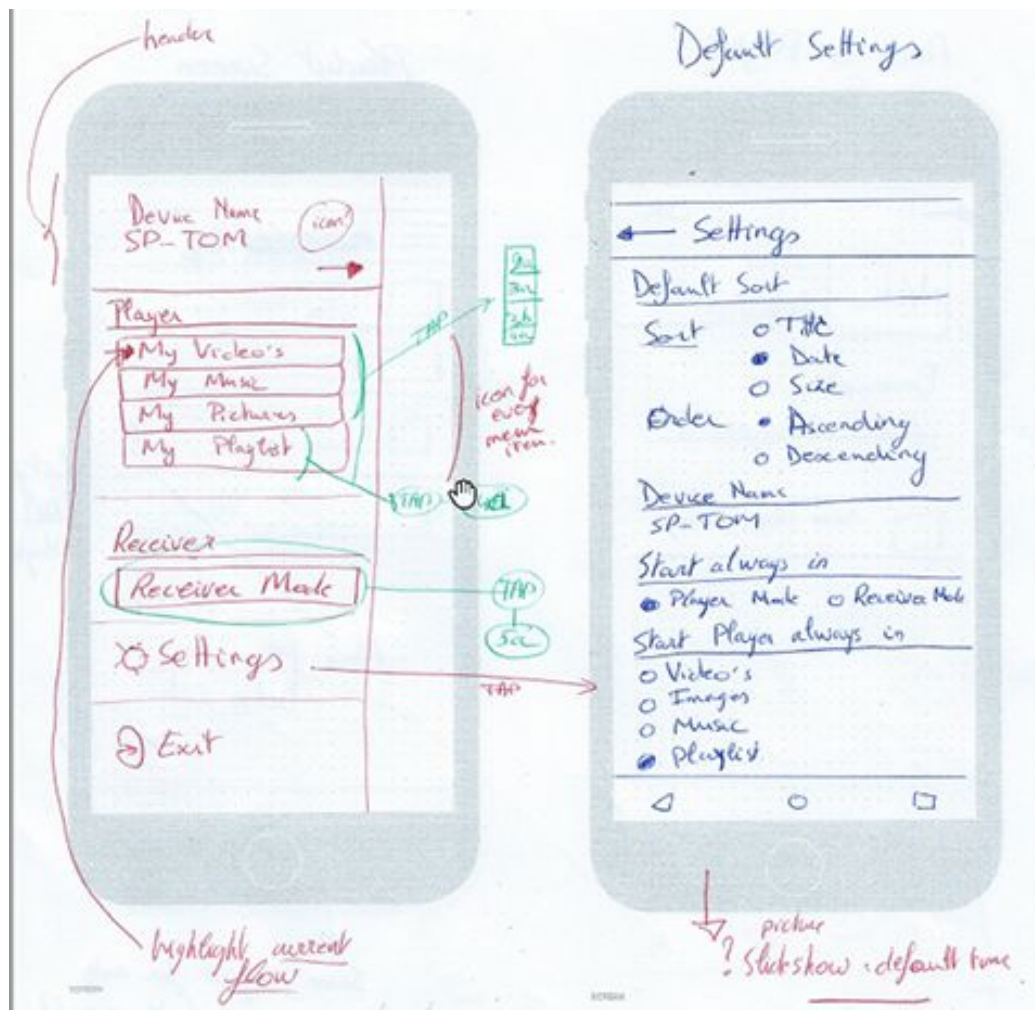 header
Device Name
SP-TOM
icon
Player
My Video's
My Music
My Pictures
My Playlist
TAP
icon for
every
menu
item.
TAP
Receiver
Receiver Mode
TAP
Settings
TAP
Exit
highlight current
flow
Default Settings
Settings
Default Sort
Sort
Date
Size
Order
Ascending
Descending
Device Name
SP-TOM
Start always in
Player Mode
Receiver Mode
Start Player always in
Video's
Images
Music
Playlist
picture
? Slideshow : default time